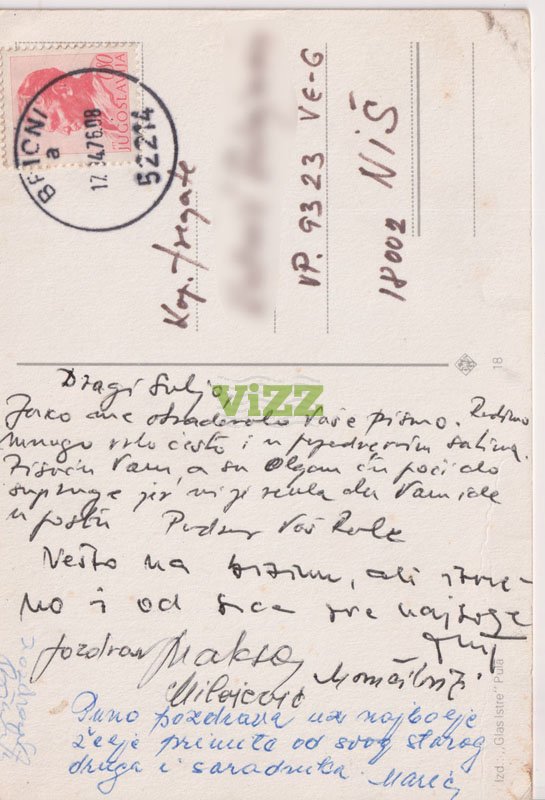 JUGOSLAVIJA
BRIONI
a
17.
4.76.08
52214
Kap. fregate
VP. 9323 VE-G
18002 NIŠ
18
Dragi Sulja,
Jako me obradovalo Vaše pismo. Radimo
mnogo vrlo često i u popodnevnim satima.
Vam a sa Olgom ću poći do
supruge jer mi je rekla da Vam ide
u poštu Pozdrav Vaš
Nešto na brzinu, ali iskre-
no i od srca sve najbolje
pozdrav Maksa
Milojević
Puno pozdrava uz najbolje
želje primite od svog starog
druga i saradnika. Marić
Izd. „Glas Istre" Pula
ViZZ